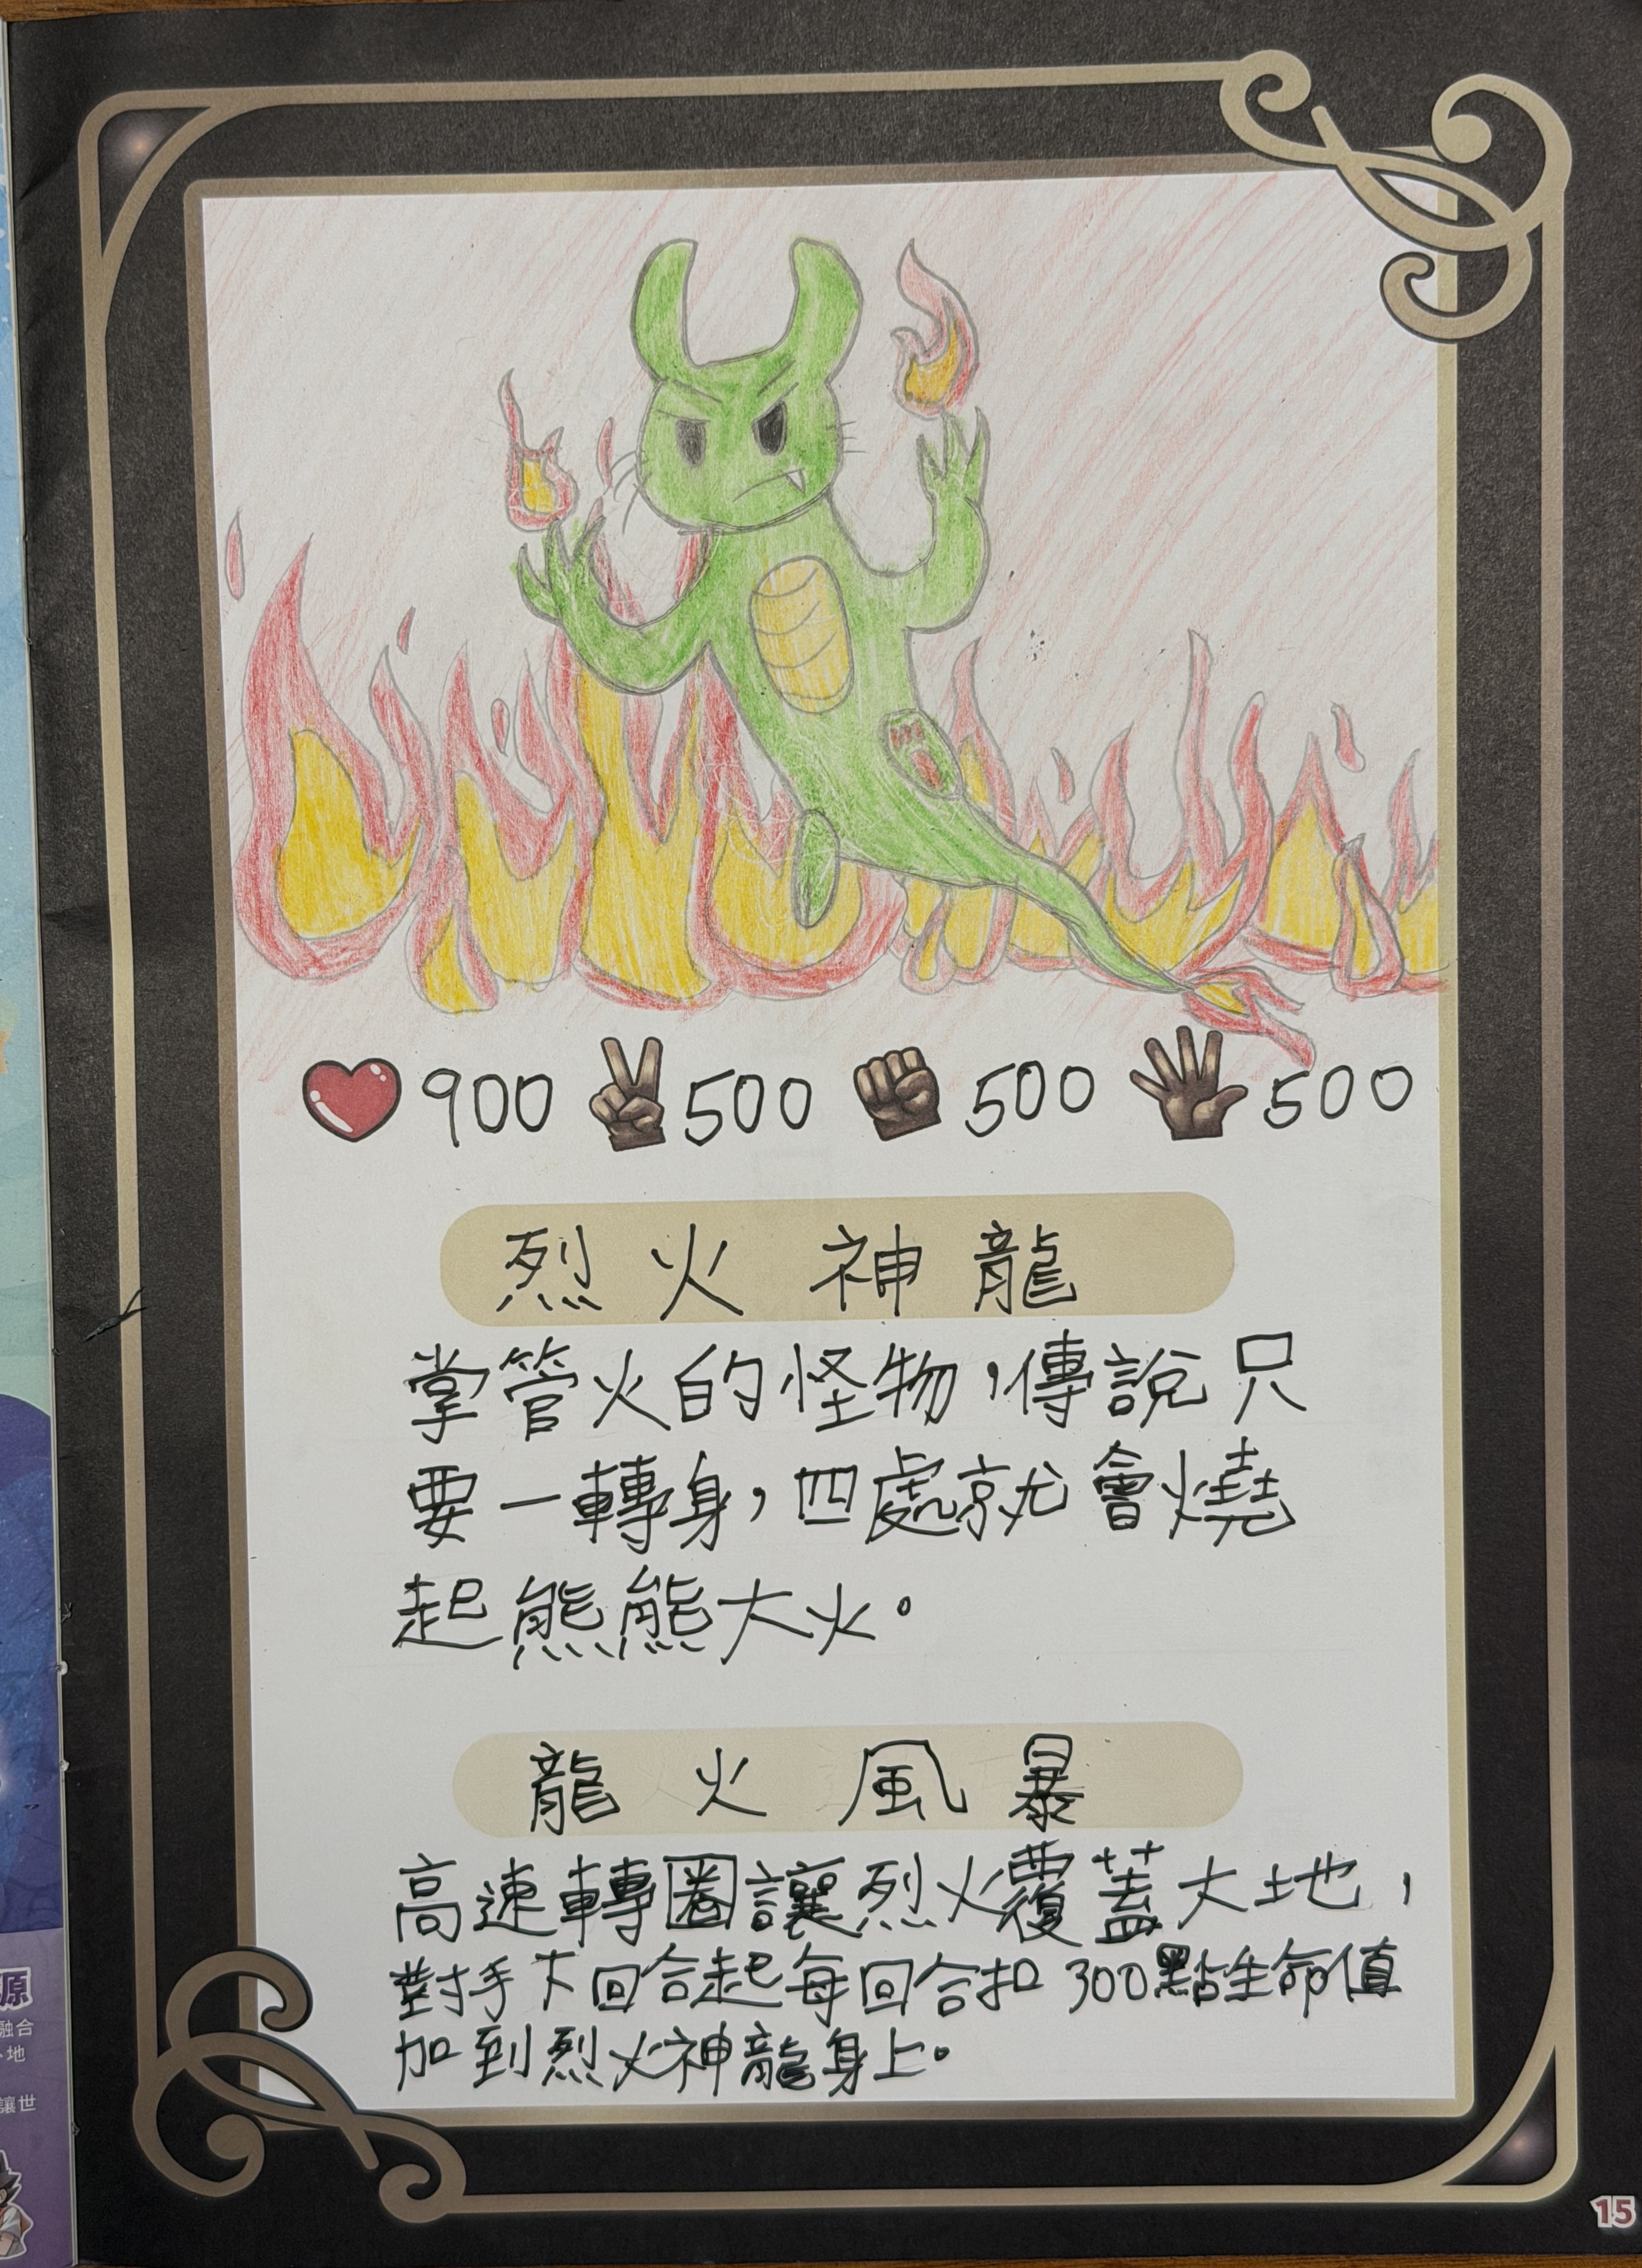 900 500 500 500
烈火神龍
掌管火的怪物,傳說只
要一轉身,四處就會燒
起熊熊大火。
龍火風暴
高速轉圈讓烈火覆蓋大地,
對手下回合起每回合扣300點生命值
加到烈火神龍身上。
源
融合
地
讓世
15